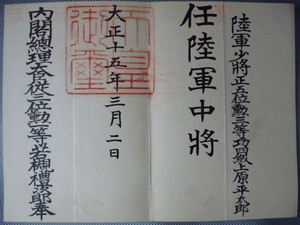 陸軍少將正五位勳三等功四級上原平太郎
任陸軍中將
大正十五年三月二日
内閣總理大臣從三位勳一等若槻禮次郎奉